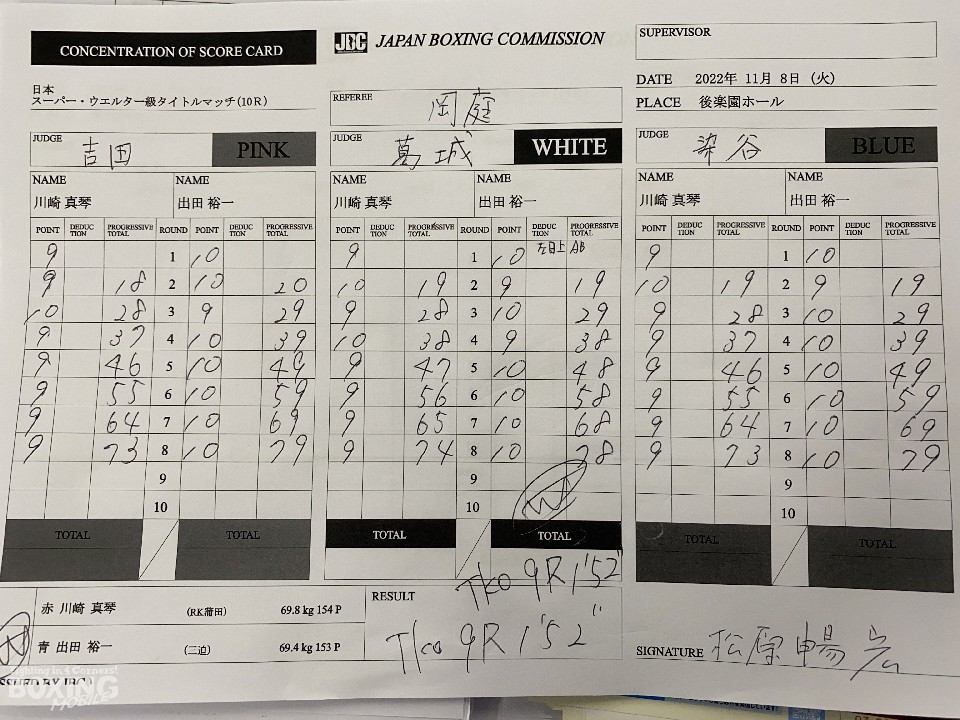 CONCENTRATION OF SCORE CARD
JBC JAPAN BOXING COMMISSION
SUPERVISOR
日本
スーパー・ウエルター級タイトルマッチ(10R)
REFEREE 岡庭
DATE 2022年 11月 8日 (火)
PLACE 後楽園ホール
JUDGE 吉田 PINK
JUDGE 葛城 WHITE
JUDGE 染谷 BLUE
NAME NAME NAME NAME NAME NAME
川崎 真琴 出田 裕一 川崎 真琴 出田 裕一 川崎 真琴 出田 裕一
POINT DEDUCTION PROGRESSIVE TOTAL ROUND POINT DEDUCTION PROGRESSIVE TOTAL POINT DEDUCTION PROGRESSIVE TOTAL ROUND POINT DEDUCTION PROGRESSIVE TOTAL POINT DEDUCTION PROGRESSIVE TOTAL ROUND POINT DEDUCTION PROGRESSIVE TOTAL
9 1 10 9 1 10 左目上 AB 9 1 10
9 18 2 10 20 10 19 2 9 19 10 19 2 9 19
10 28 3 9 29 9 28 3 10 29 9 28 3 10 29
9 37 4 10 39 10 38 4 9 38 9 37 4 10 39
9 46 5 10 49 9 47 5 10 48 9 46 5 10 49
9 55 6 10 59 9 56 6 10 58 9 55 6 10 59
9 64 7 10 69 9 65 7 10 68 9 64 7 10 69
9 73 8 10 79 9 74 8 10 78 9 73 8 10 79
9 9 9
10 10 10
TOTAL TOTAL TOTAL TOTAL TOTAL TOTAL
TKO 9R 1'52"
赤 川崎 真琴 (RK蒲田) 69.8 kg 154 P
青 出田 裕一 (三迫) 69.4 kg 153 P
RESULT
TKO 9R 1'52"
SIGNATURE
ISSUED BY JBC
Fighting in 4 Corners!
BOXING
MOBILE